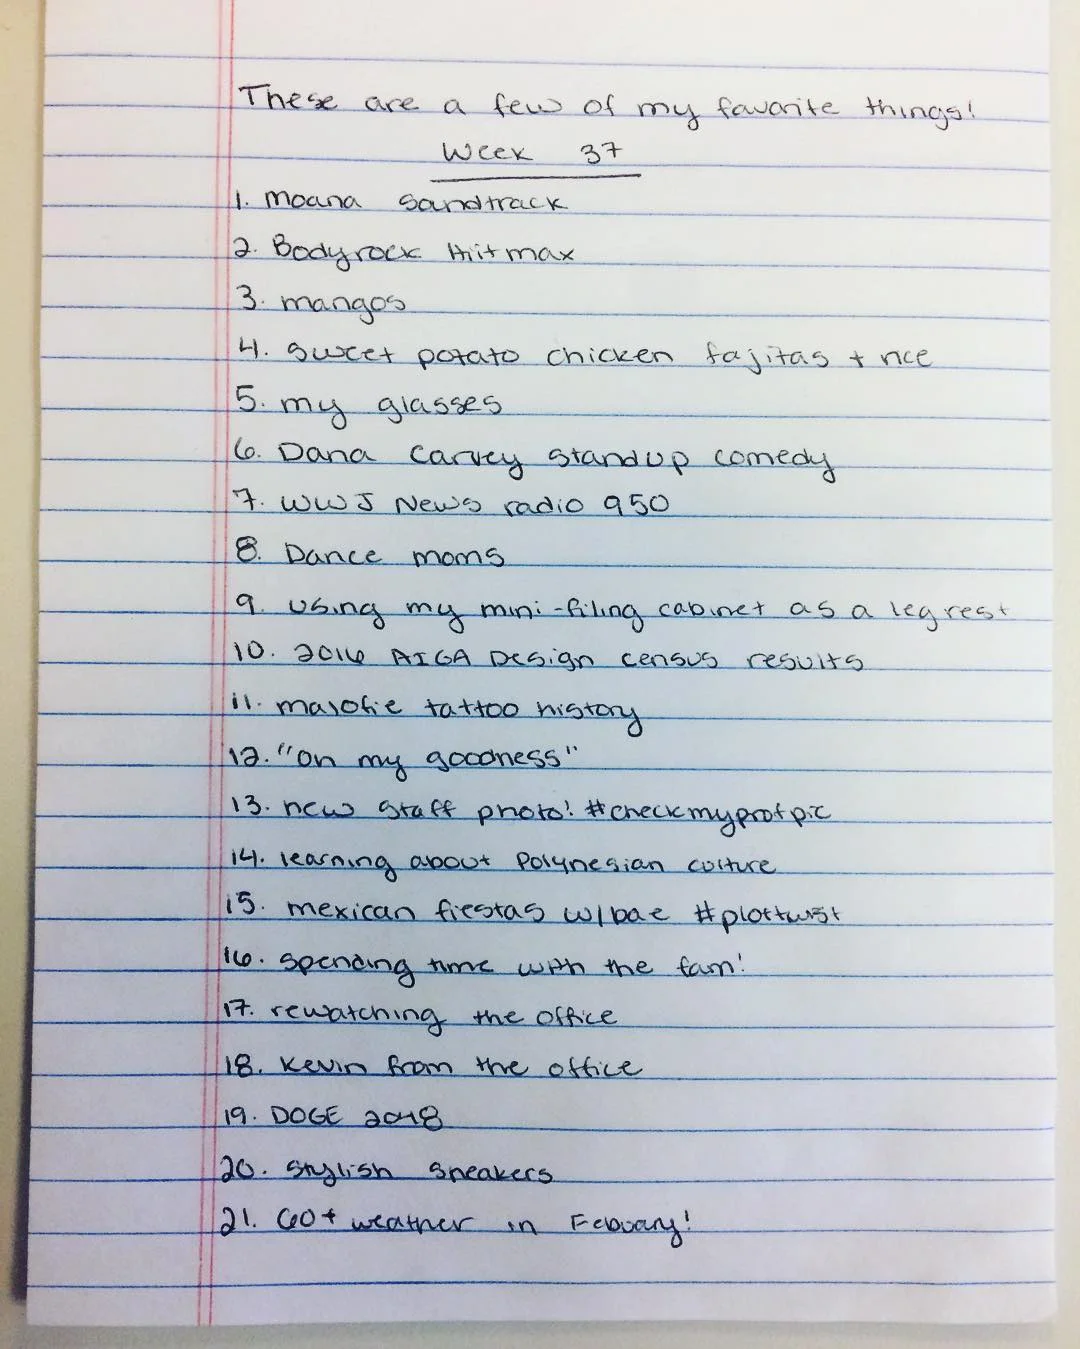 These are a few of my favorite things!
Week 37
1. Moana Sandtrack
2. Bodyrock Hiitmax
3. mangos
4. Sweet potato chicken fajitas + rice
5. my glasses
6. Dana Carvey standup comedy
7. WWJ News radio 950
8. Dance moms
9. using my mini-filing cabinet as a leg rest
10. 2016 AIGA Design census results
11. malofie tattoo history
12. "Oh my goodness"
13. new staff photo! #checkmyprofpic
14. learning about Polynesian culture
15. mexican fiestas w/bae #plottwist
16. spending time with the fam!
17. rewatching the office
18. Kevin from the office
19. DOGE 2048
20. stylish sneakers
21. 60+ weather in Febuary!